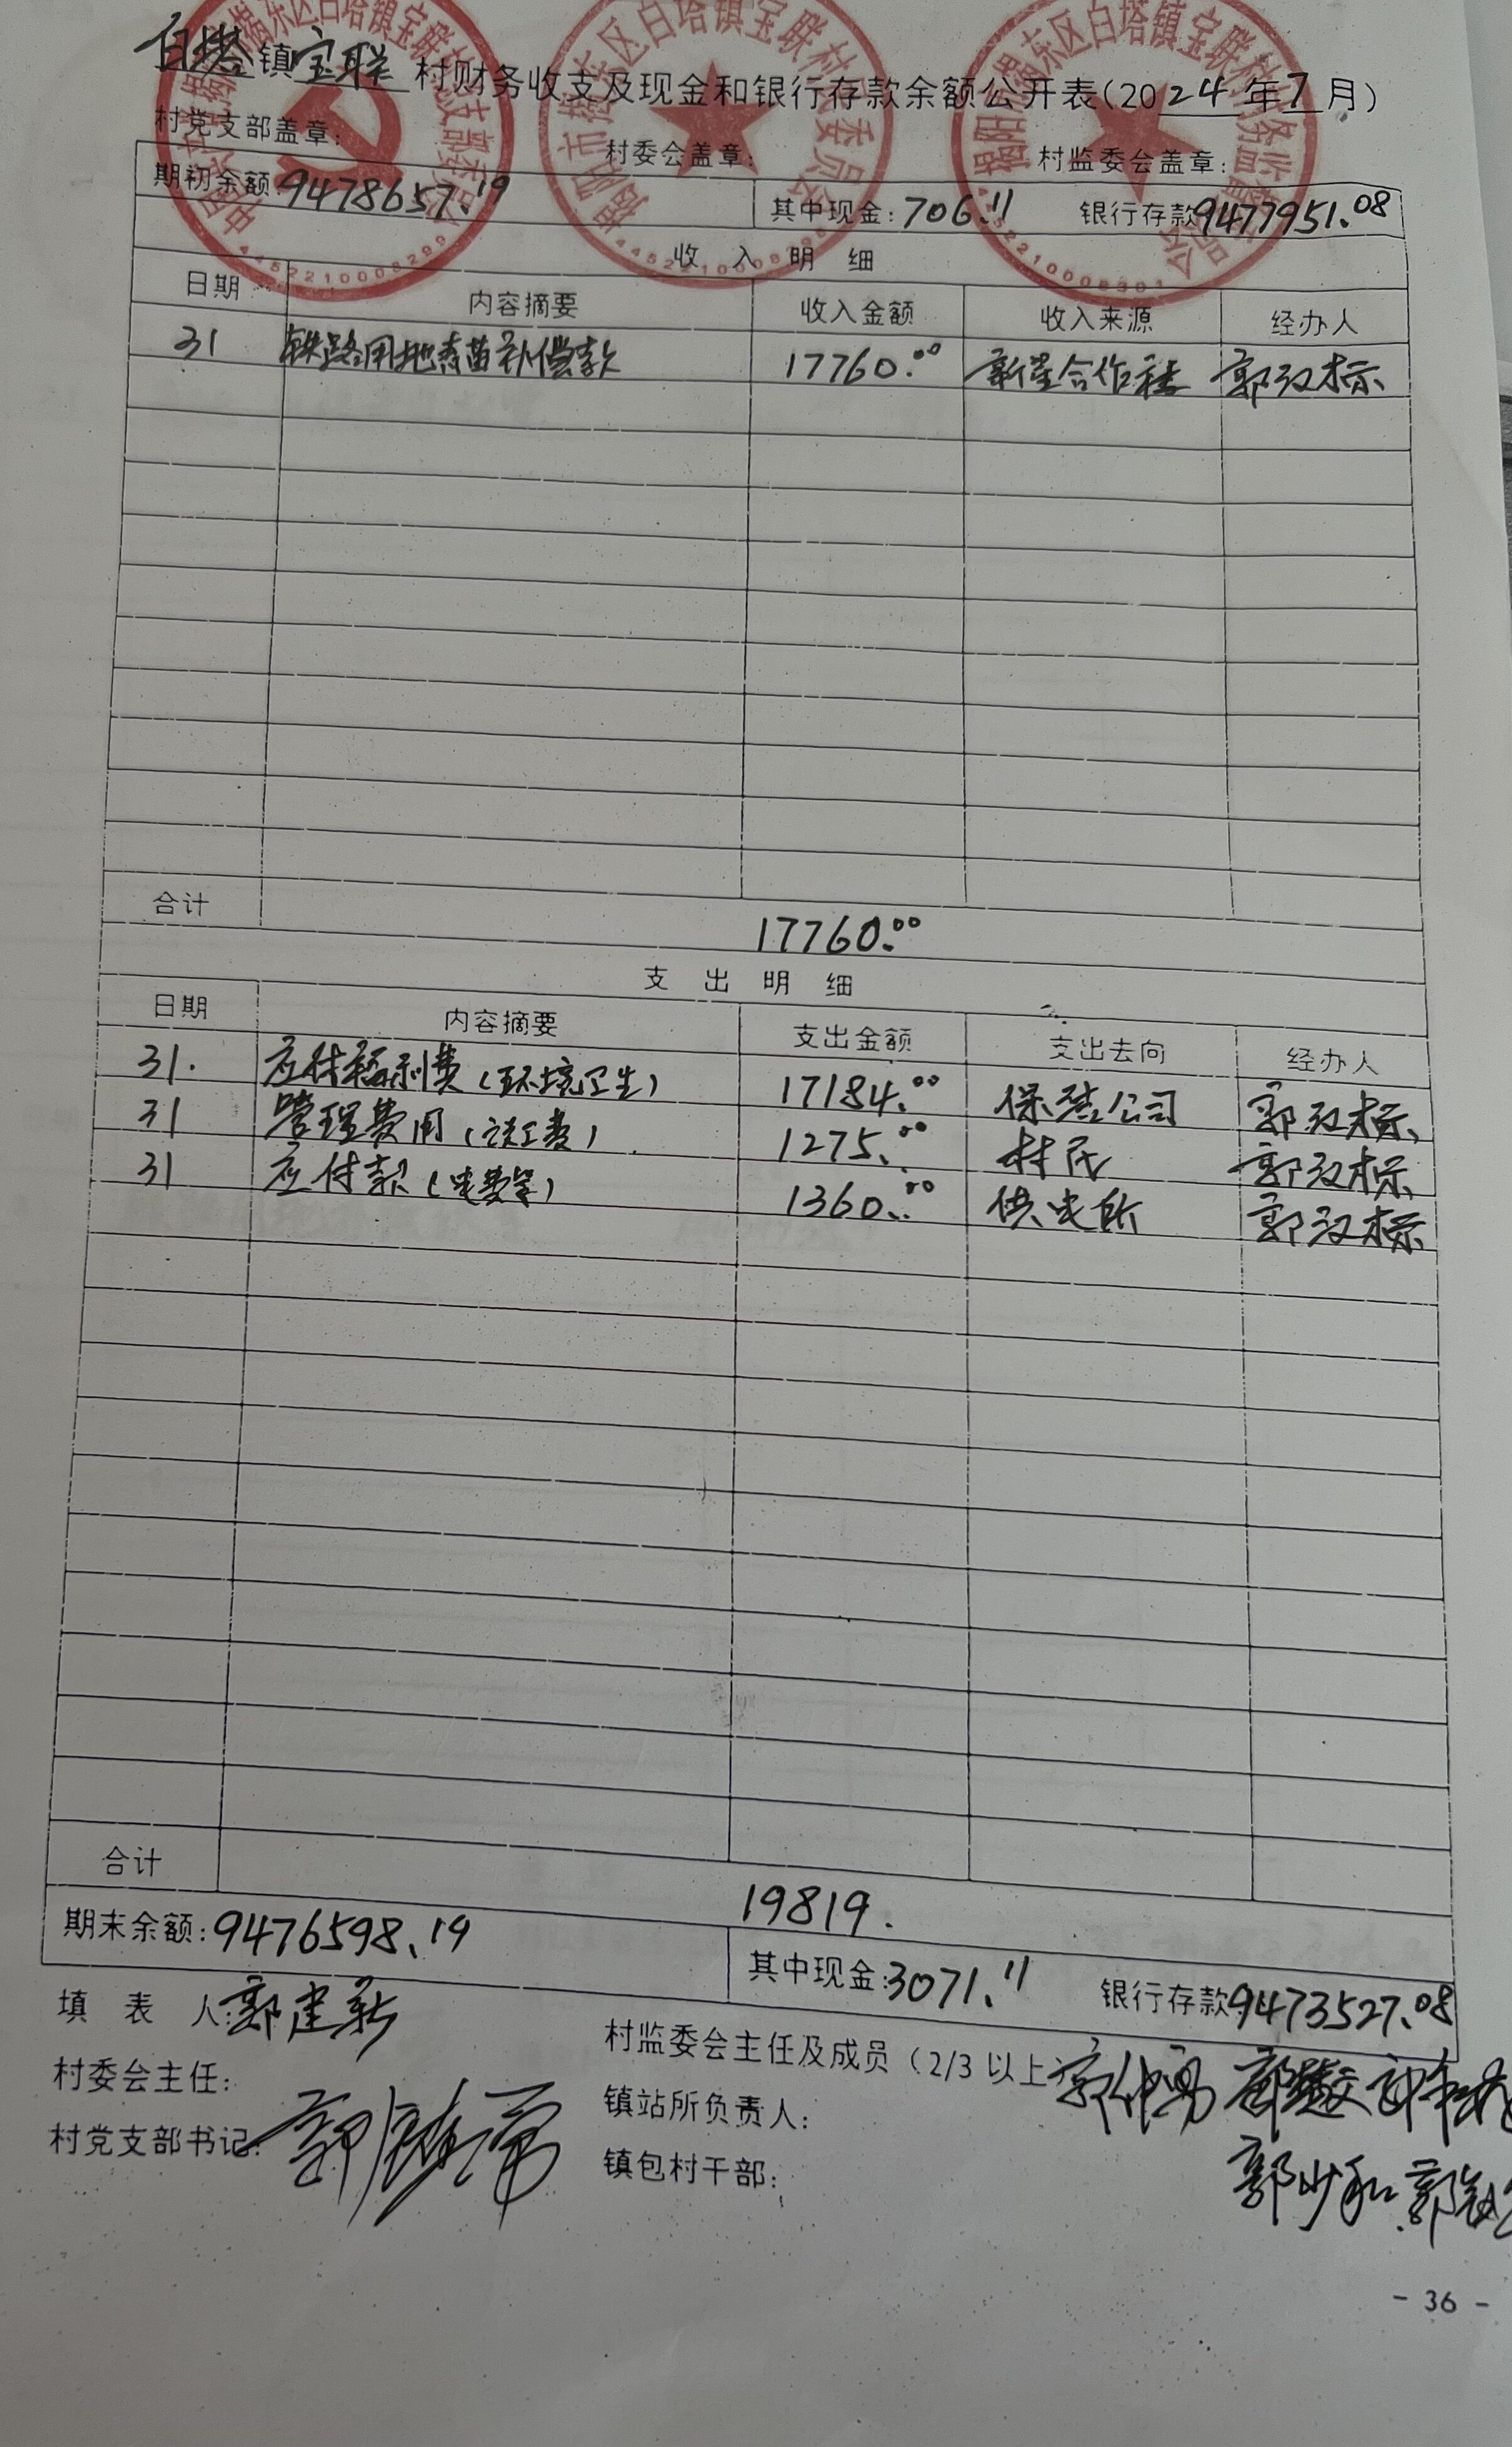 白塔镇宝联村财务收支及现金和银行存款余额公开表(2024年7月)
村党支部盖章: 村委会盖章: 村监委会盖章:
期初余额:9478657.19 其中现金:706.11 银行存款9477951.08
收入明细
日期 内容摘要 收入金额 收入来源 经办人
31 铁路用地青苗补偿款 17760.00 合作社 郭汉标
合计 17760.00
支出明细
日期 内容摘要 支出金额 支出去向 经办人
31. 应付福利费(环境卫生) 17184.00 保洁公司 郭汉标
31 管理费用(误工费) 1275.00 村民 郭汉标
31 应付款(电费等) 1360.00 供电所 郭汉标
合计 19819.
期末余额:9476598.19 其中现金:3071.11 银行存款9473527.08
填表人:郭建新
村监委会主任及成员(2/3以上)
村委会主任:
镇站所负责人:
村党支部书记:
镇包村干部:
郭少和
- 36 -